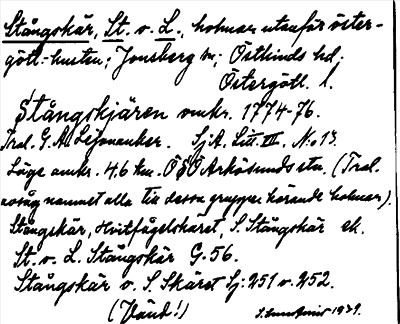 Stångskär, St. o. L., holmar utanför öster-
götl. kusten; Jonsberg sn; Östkinds hd;
Östergötl. l.
Stångskjären omkr. 1774-76.
Trol. G. Ad. Lejonanker. SjA. Litt. VII. No 13.
Läge omkr. 4.6 km. OSO Arkösunds stn. (Trol.
avsåg namnet alla till denna grupp hörande holmar).
Stångskär, Hvitfågelskäret, S. Stångskär ek.
St. o. L. Stångskär G. 56.
Stångskär o. S. Skäret Sj: 251 o. 252.
(Vänd!) 1939.